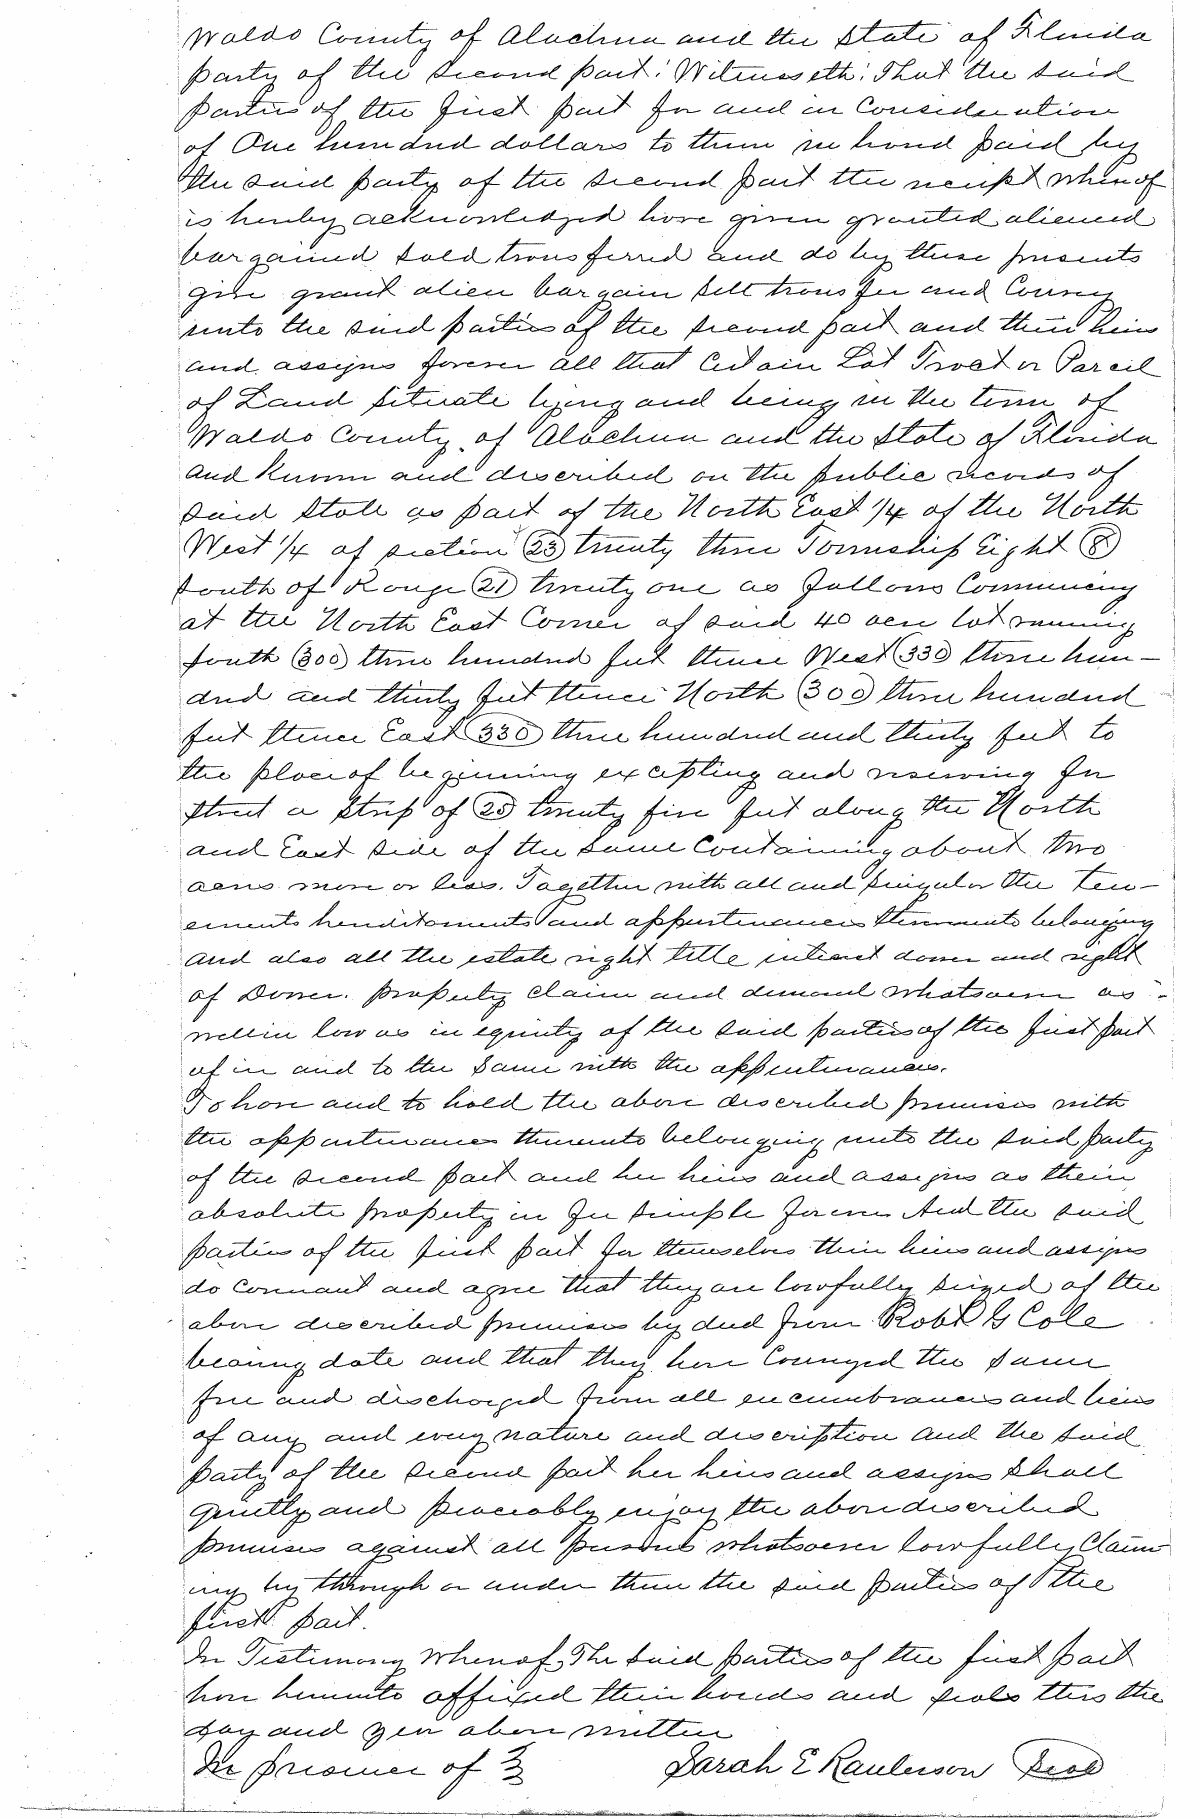 Waldo County of Alachua and the State of Florida
party of the second part: Witnesseth: That the said
parties of the first part for and in consideration
of One hundred dollars to them in hand paid by
the said party of the second part the receipt whereof
is hereby acknowledged have given granted aliened
bargained sold transferred and do by these presents
give grant alien bargain sell transfer and Convey
unto the said parties of the second part and their heirs
and assigns forever all that Certain Lot Tract or Parcil
of Land situate lying and being in the town of
Waldo County of Alachua and the State of Florida
and known and discribed on the public records of
said State as part of the North East 1/4 of the North
West 1/4 of section (23) twenty three Township Eight (8)
south of Range (21) twenty one as follows Commencing
at the North East Corner of said 40 acre lot running
south (300) three hundred feet thence West (330) three hun-
dred and thirty feet thence North (300) three hundred
feet thence East (330) three hundred and thirty feet to
the place of beginning excepting and reserving for
street a strip of (25) twenty five feet along the North
and East side of the same Containing about two
acres more or less. Together with all and singular the ten-
ements hereditaments and appurtenances thereunto belonging
and also all the estate right title interest dower and right
of Dower. property claim and demand whatsoever as
well in law as in equity of the said parties of the first part
of in and to the same with the appurtenances.
To have and to hold the above discribed premises with
the appurtenances thereunto belonging unto the said party
of the second part and her heirs and assigns as their
absolute property in fee simple forever And the said
parties of the first part for themselves their heirs and assigns
do covenant and agree that they are lawfully seized of the
above discribed premises by deed from Robt G Cole
bearing date and that they have Conveyed the same
free and discharged from all encumbrances and liens
of any and every nature and discription and the said
party of the second part her heirs and assigns shall
quietly and peaceably enjoy the above discribed
premises against all persons whatsoever lawfully Claim-
ing by through or under them the said parties of the
first part.
In Testimony Whereof, The said parties of the first part
have hereunto affixed their hands and seals this the
day and year above written
In presence of } Sarah E Raulerson (Seal)